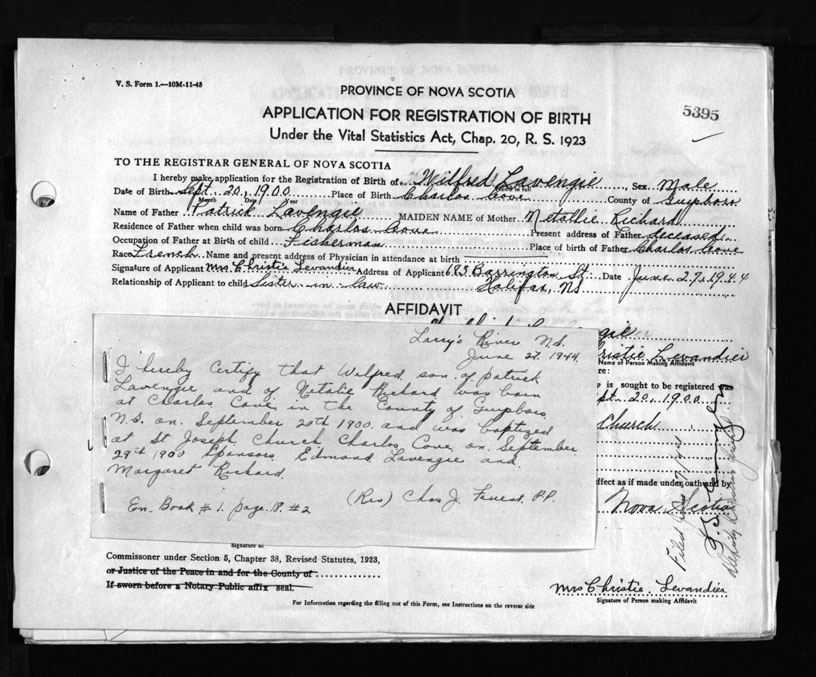 V. S. Form 1.—10M-11-43
PROVINCE OF NOVA SCOTIA
5395
APPLICATION FOR REGISTRATION OF BIRTH
Under the Vital Statistics Act, Chap. 20, R. S. 1923
TO THE REGISTRAR GENERAL OF NOVA SCOTIA
I hereby make application for the Registration of Birth of Wilfred Lavengie, Sex Male
Date of Birth Sept. 20, 1900 Place of Birth Charlos Cove County of Guysboro
Month Day Year
Name of Father Patrick Lavengie MAIDEN NAME of Mother Netallie Richard
Residence of Father when child was born Charlos Cove Present address of Father deceased
Occupation of Father at Birth of child Fisherman Place of birth of Father Charlos Cove
Race French Name and present address of Physician in attendance at birth
Signature of Applicant Mrs Christie Levandier Address of Applicant 683 Barrington St. Date June 27, 1944
Relationship of Applicant to child Sister in law Halifax, NS
AFFIDAVIT
Larry's River N.S.
June 27. 1944.
I hereby certify that Wilfred son of Patrick
Lavengie and of Natalie Richard was born
at Charlos Cove in the County of Guysboro
N.S. on September 20th 1900 and was baptized
at St Joseph Church Charlos Cove on September
29th 1900 Sponsors Edmond Lavengie and
Margaret Richard.
(Rev) Chas J. Forest. P.P.
En. Book # 1. page 18. # 2
ristie Levandier
Name of Person Making Affidavit
re:
is sought to be registered
pt. 20, 1900
Church
effect as if made under oath and by
Nova Scotia
Signature of
Commissioner under Section 5, Chapter 38, Revised Statutes, 1923,
or Justice of the Peace in and for the County of
If sworn before a Notary Public affix seal.
Mrs Christie Levandier
Signature of Person making Affidavit
For Information regarding the filling out of this Form, see Instructions on the reverse side
Filed